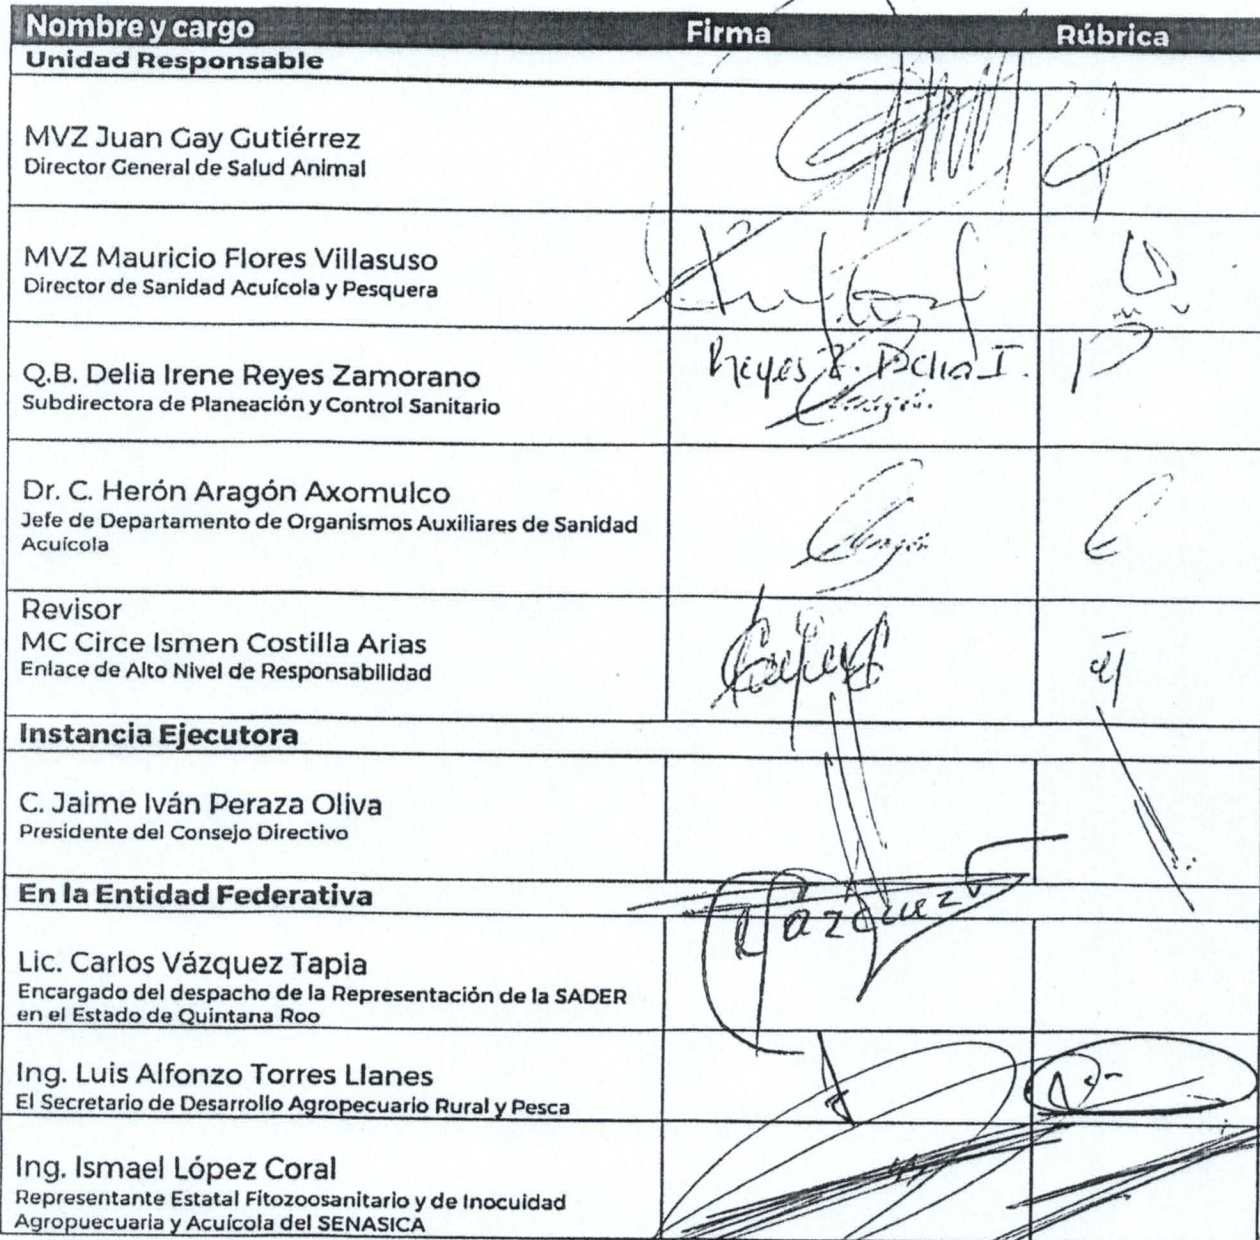 Nombre y cargo Firma Rúbrica
Unidad Responsable
MVZ Juan Gay Gutiérrez
Director General de Salud Animal
MVZ Mauricio Flores Villasuso
Director de Sanidad Acuícola y Pesquera
Reyes Z. Delia I.
Q.B. Delia Irene Reyes Zamorano
Subdirectora de Planeación y Control Sanitario
Dr. C. Herón Aragón Axomulco
Jefe de Departamento de Organismos Auxiliares de Sanidad
Acuícola
Revisor
MC Circe Ismen Costilla Arias
Enlace de Alto Nivel de Responsabilidad
Instancia Ejecutora
C. Jaime Iván Peraza Oliva
Presidente del Consejo Directivo
En la Entidad Federativa
Vazquez
Lic. Carlos Vázquez Tapia
Encargado del despacho de la Representación de la SADER
en el Estado de Quintana Roo
Ing. Luis Alfonzo Torres Llanes
El Secretario de Desarrollo Agropecuario Rural y Pesca
Ing. Ismael López Coral
Representante Estatal Fitozoosanitario y de Inocuidad
Agropuecuaria y Acuícola del SENASICA